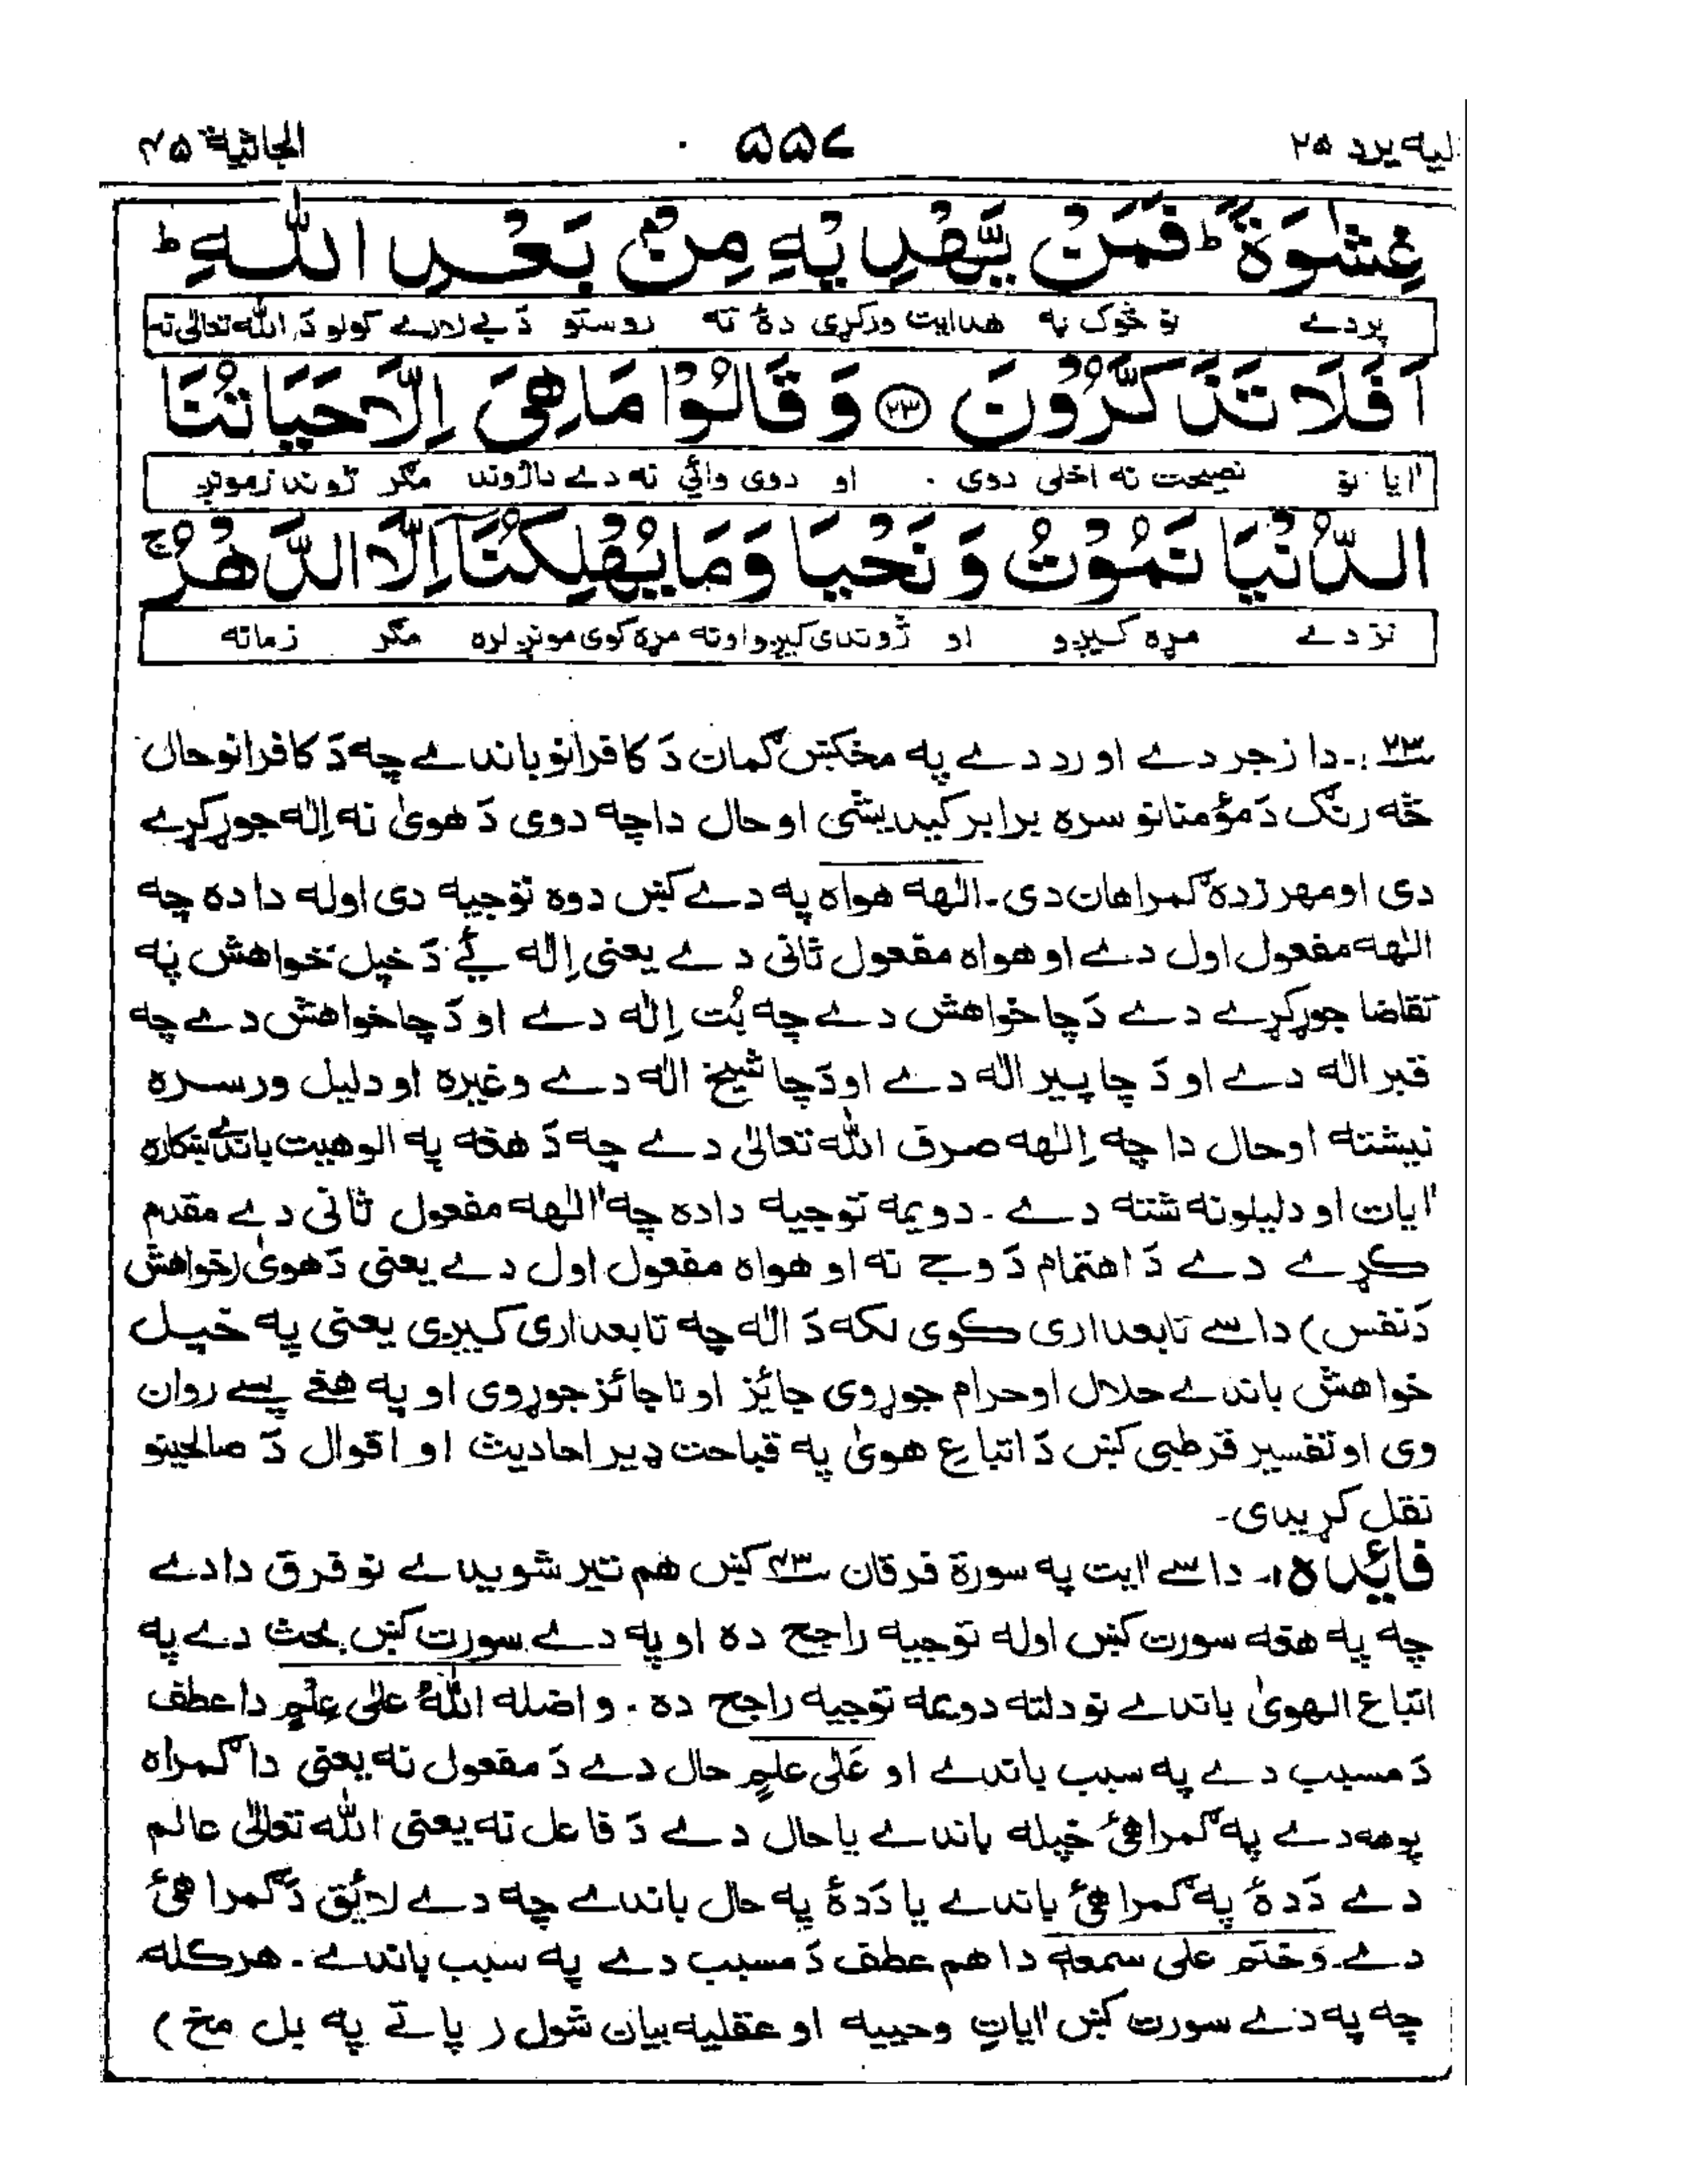 الیه یرد ۲۵ ۵۵۷ الجاثیة ۴۵
غِشٰوَةً ؕ فَمَنْ يَّهْدِيْهِ مِنْۢ بَعْدِ اللّٰهِ ؕ
پردے نو څوک به هدایت ورکړی دۀ ته روستو دَ بے لارے کولو دَ الله تعالیٰ نه
اَفَلَا تَذَكَّرُوْنَ ﴿۲۳﴾ وَ قَالُوْا مَا هِيَ اِلَّا حَيَاتُنَا
اٰیا نو نصیحت نه اخلی دوی . او دوی وائی نه دے دا ژوند مګر ژوند زمونږ
الدُّنْيَا نَمُوْتُ وَ نَحْيَا وَ مَا يُهْلِكُنَآ اِلَّا الدَّهْرُ ۚ
نزدے مړه کیږو او ژوندی کیږو او نه مړه کوی مونږ لره مګر زمانه
۲۳ :- دا زجر دے او رد دے په مخکښ ګمان دَ کافرانو باندے چه دَ کافرانو حال
څه رنګ دَ مؤمنانو سره برابر کیدیشی او حال دا چه دوی دَ هویٰ نه اِلٰه جوړ کړے
دی او مهر زده ګمراهان دی۔ الٰهه هواه په دے کښ دوه توجیه دی اوله دا ده چه
الٰهه مفعول اول دے او هواه مفعول ثانی دے یعنی اِلٰه ئے دَ خپل خواهش په
تقاضا جوړ کړے دے دَ چا خواهش دے چه بُت اِلٰه دے او دَ چا خواهش دے چه
قبر الٰه دے او دَ چا پیر الٰه دے او دَ چا شیخ الٰه دے وغیره او دلیل ورسره
نیشته او حال دا چه اِلٰهه صرف الله تعالیٰ دے چه دَ هغه په الوهیت باندے ښکاره
اٰیات او دلیلونه شته دے ۔ دویمه توجیه دا ده چه الٰهه مفعول ثانی دے مقدم
کړے دے دَ اهتمام دَ وجے نه او هواه مفعول اول دے یعنی دَ هویٰ (خواهش
دَ نفس) داسے تابعداری کوی لکه دَ الٰه چه تابعداری کیږی یعنی په خپل
خواهش باندے حلال او حرام جوړوی جائز او ناجائز جوړوی او په هغے پسے روان
وی او تفسیر قرطبی کښ دَ اتباعِ هویٰ په قباحت ډیر احادیث او اقوال دَ صالحینو
نقل کړیدی۔
فائده ۱۔ داسے اٰیت په سورة فرقان ۴۳ کښ هم تیر شویدے نو فرق دا دے
چه په هغه سورت کښ اوله توجیه راجح ده او په دے سورت کښ بحث دے په
اتباع الهویٰ باندے نو دلته دویمه توجیه راجح ده . و اضله اللهُ علیٰ علمٍ دا عطف
دَ مسبب دے په سبب باندے او عَلٰی علمٍ حال دے دَ مفعول نه یعنی دا ګمراه
پوهه دے په ګمراهئ خپله باندے یا حال دے دَ فاعل نه یعنی الله تعالیٰ عالم
دے دَ دۀ په ګمراهئ باندے یا دَ دۀ په حال باندے چه دے لائق دَ ګمراهئ
دے۔ وَختم علی سمعهٖ دا هم عطف دَ مسبب دے په سبب باندے . هر کله
چه په دے سورت کښ اٰیاتِ وحییه او عقلیه بیان شول ( پاتے په بل مخ )